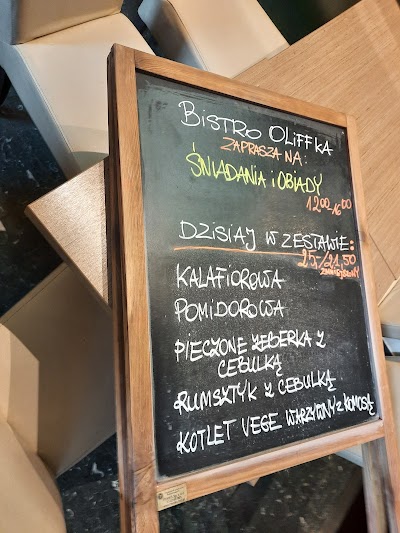 BISTRO OLIFFKA
ZAPRASZA NA:
ŚNIADANIA i OBIADY
12⁰⁰-16⁰⁰
DZISIAJ W ZESTAWIE:
25,-/21,50
KALAFIOROWA
POMIDOROWA
PIECZONE ŻEBERKA Z
CEBULKĄ
RUMSZTYK Z CEBULKĄ
KOTLET VEGE WARZYWNY Z KOMOSĄ